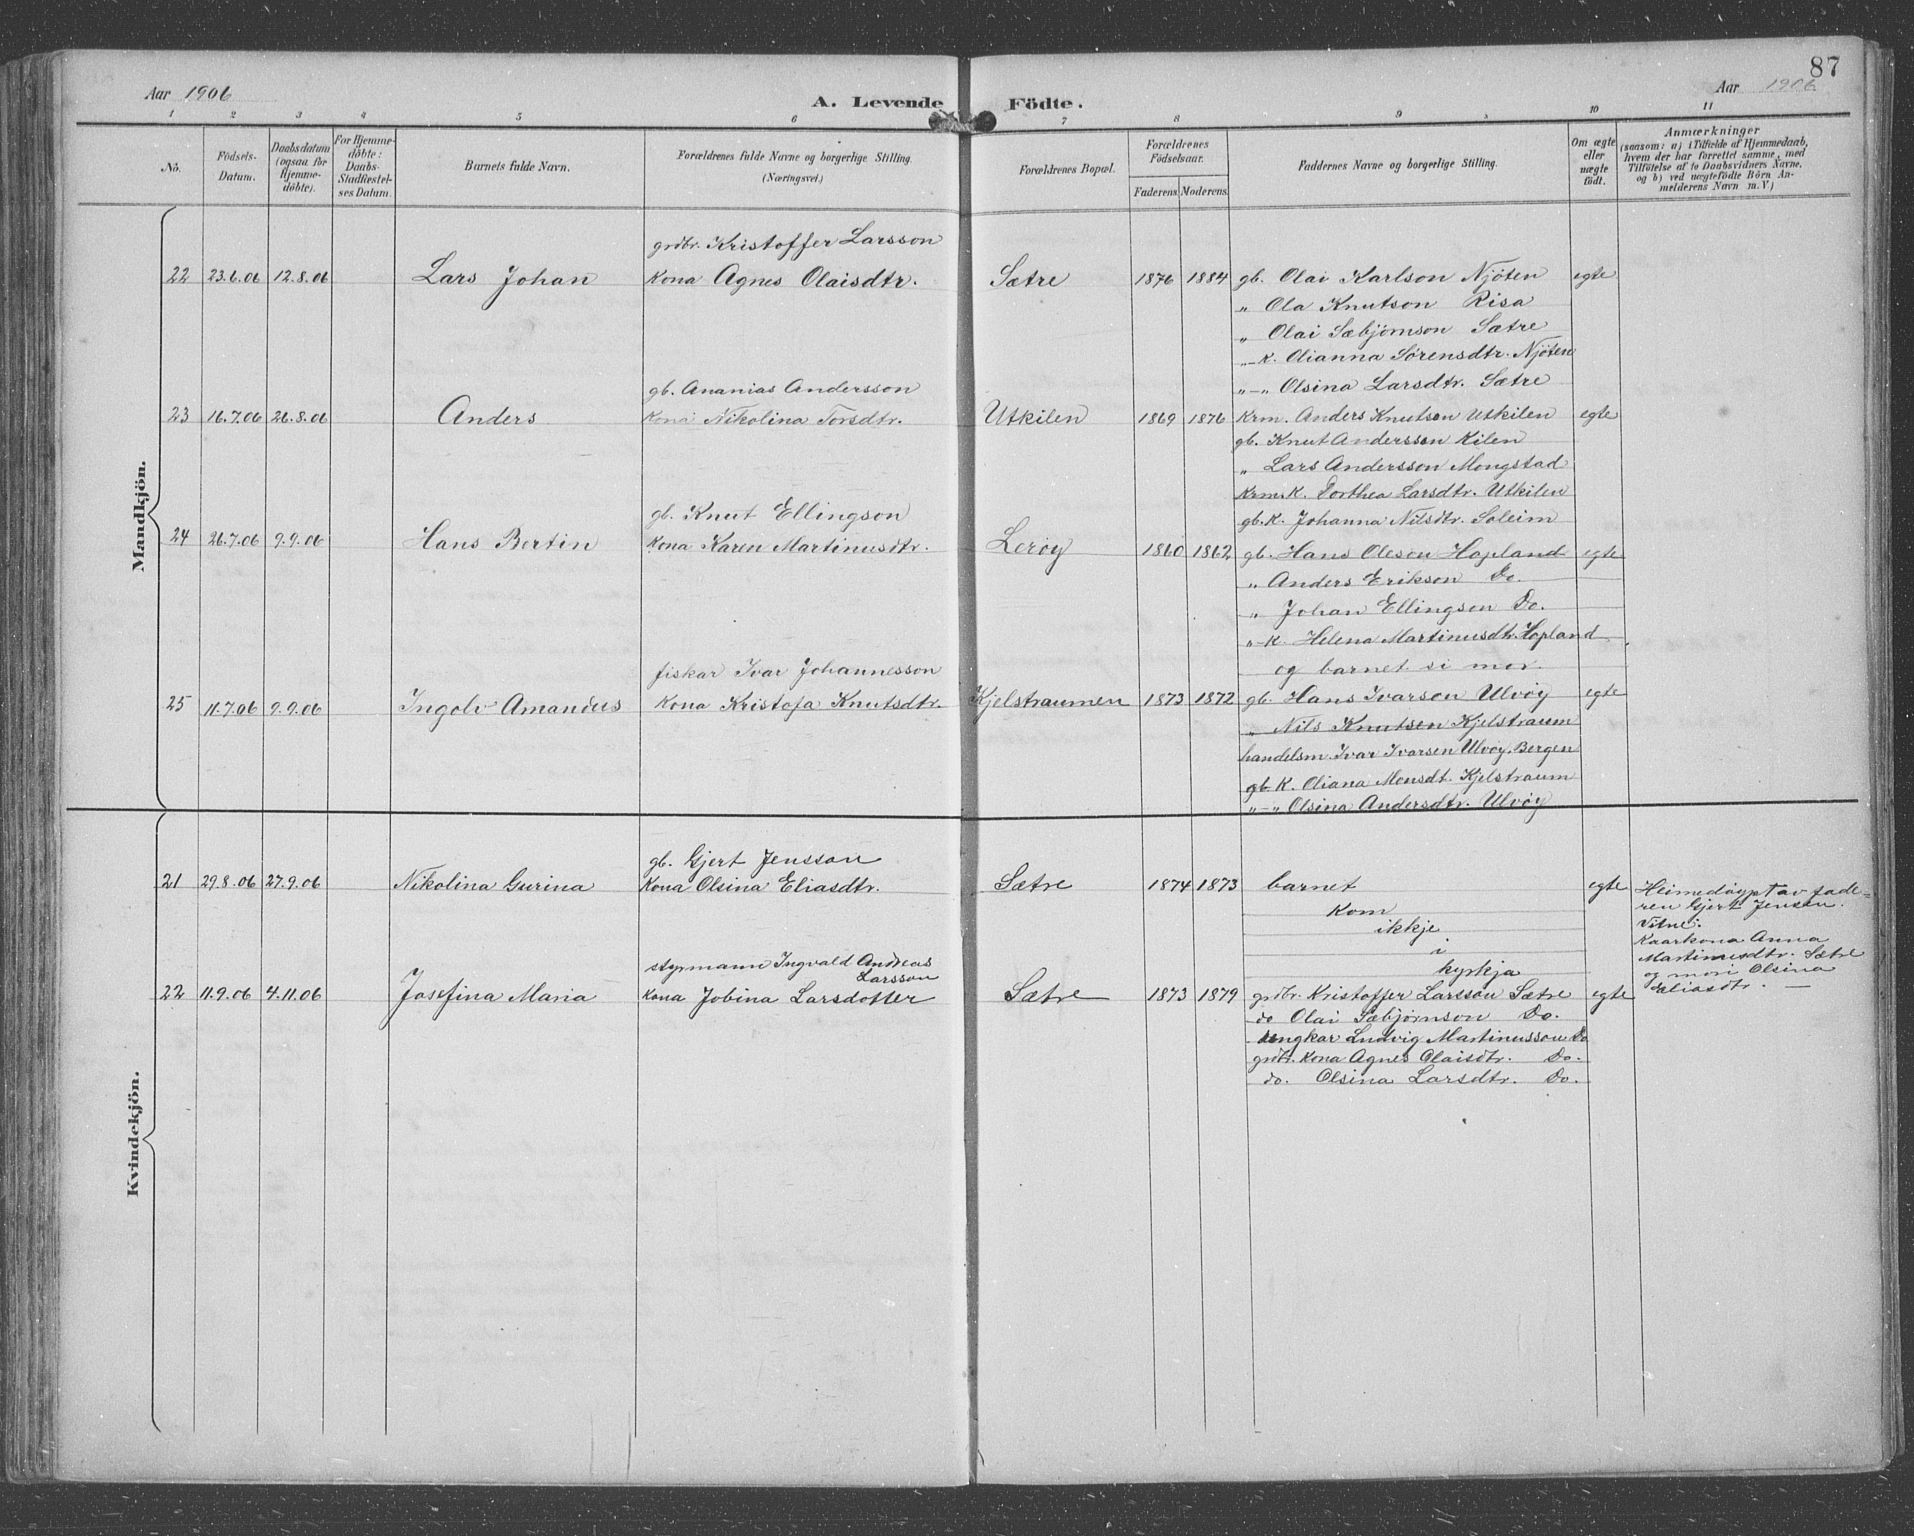 87
Aar 1906
A. Levende Födte.
Aar 1906
1 2 3 4 5 6 7 8 9 10 11
No.
Födsels-Datum.
Daabsdatum (ogsaa for Hjemme-döbte).
For Hjemme-döbte: Daabs-Stadfæstel-ses Datum.
Barnets fulde Navn.
Forældrenes fulde Navne og borgerlige Stilling.
(Næringsvei.)
Forældrenes Bopæl.
Forældrenes Födselsaar.
Faderens. Moderens.
Faddernes Navne og borgerlige Stilling.
Om ægte eller uægte födt.
Anmærkninger
(saasom: a) i Tilfælde af Hjemmedaab,
hvem der har forrettet samme, med
Tilföielse af to Daabsvidners Navne,
og b) ved uægtefödte Börn An-
melderens Navn m. V.)
Mandkjön.
grdbr. Kristoffer Larsson
22 23.6.06 12.8.06 Lars Johan Kona Agnes Olaisdtr. Sætre 1876 1884 gb. Olai Karlson Njöten egte
„ Ola Knutson Risa
„ Olai Sæbjørnson Sætre
„-K. Olianna Sørensdtr. Njöten
gb. Ananias Andersson
„-„ Olsina Larsdtr. Sætre
23 16.7.06 26.8.06 Anders Kona Nikolina Torsdtr. Utkilen 1869 1876 Krm. Anders Knutson Utkilen egte
gb. Knut Andersson Kilen
„ Lars Andersson Mongstad
Krm.K. Dorthea Larsdtr. Utkilen
gb. Knut Ellingson
gb.K. Johanna Nilsdtr. Soleim
24 26.7.06 9.9.06 Hans Bertin Kona Karen Martinusdtr. Lerøy 1860 1862 gb. Hans Oleson Hopland egte
„ Anders Erikson Do.
„ Johan Ellingson Do.
„-K. Helena Martinusdtr. Hopland
fiskar Ivar Johannesson
og barnet si mor.
25 11.7.06 9.9.06 Ingolv Amandus Kona Kristofa Knutsdtr. Kjelstraumen 1873 1872 gb. Hans Ivarson Ulvøy egte
„ Nils Knutsen Kjelstraum
handelsm. Ivar Ivarsen Ulvøy, Bergen
gb.K. Oliana Monsdt. Kjelstraum
„-„ Olsina Andersdtr. Ulvøy
Kvindekjön.
gb. Gjert Jensson
21 29.8.06 27.9.06 Nikolina Gurina Kona Olsina Eliasdtr. Sætre 1874 1873 barnet egte Heimedøypt av fade-
kom
ren Gjert Jensen.
ikkje
Vitne:
i
Kaarkona Anna
kyrkja
Martinusdtr. Sætre
og mori Olsina
Eliasdtr. —
styrmann Ingvald Andreas
Larsson
22 11.9.06 4.11.06 Josefina Maria Kona Jobina Larsdotter Sætre 1873 1879 grdbr. Kristoffer Larsson Sætre egte
do Olai Sæbjørnson Do.
ungkar Ludvig Martinusson Do
grdbr. Kona Agnes Olaisdtr. Do.
do. Olsina Larsdtr. Do.